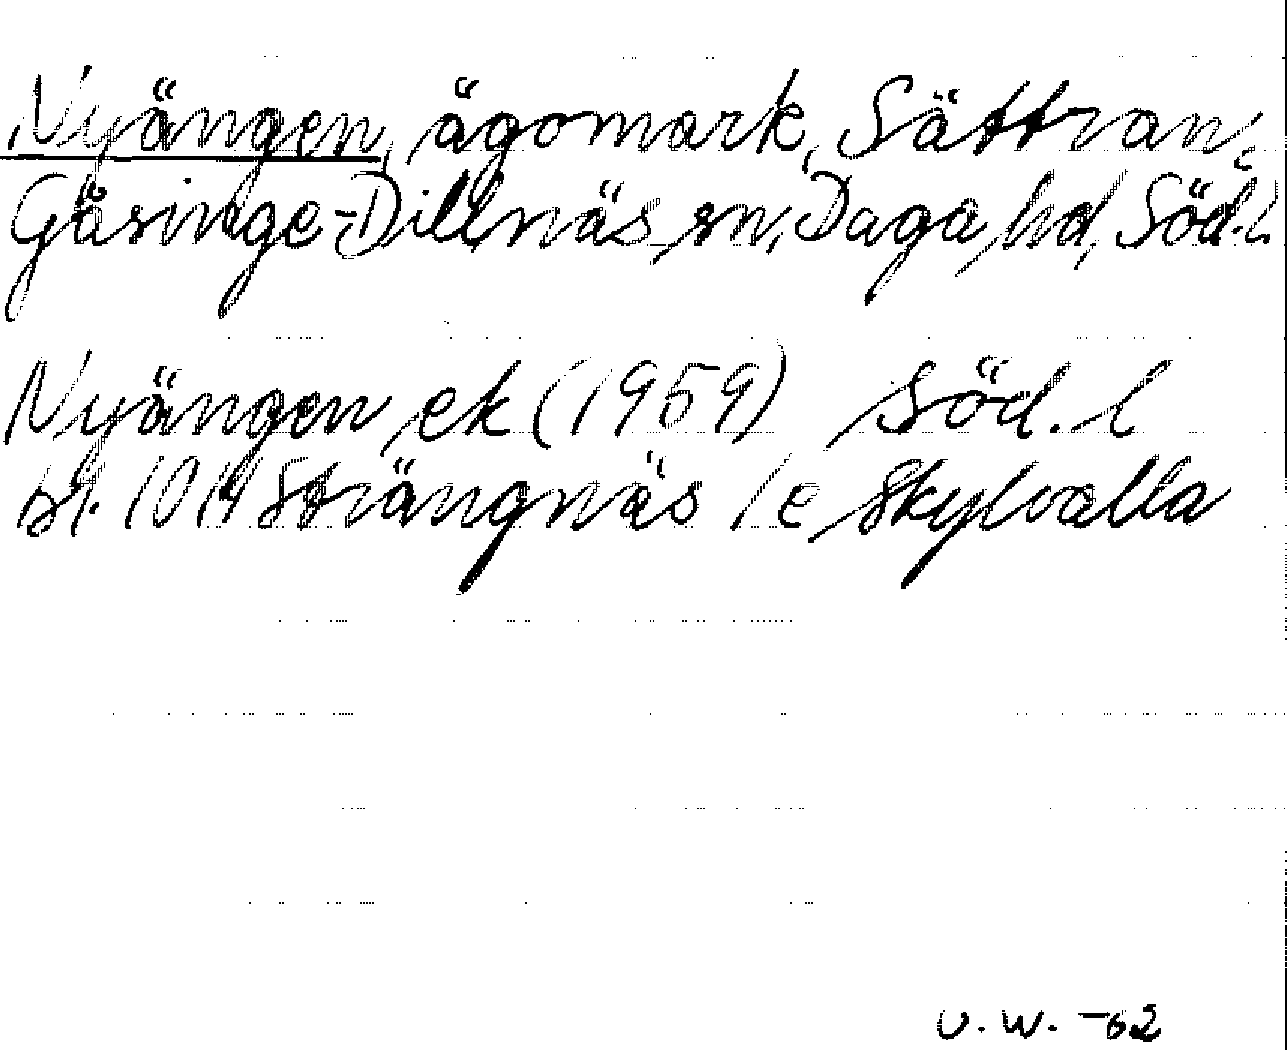 Nyängen, ägomark, Sättran,
Gåsinge-Dillnäs sn, Daga hd, Söd.l.
Nyängen ek (1959) Söd. l
bl. 10 14 Strängnäs 1e Skylvalla
U.W. -62